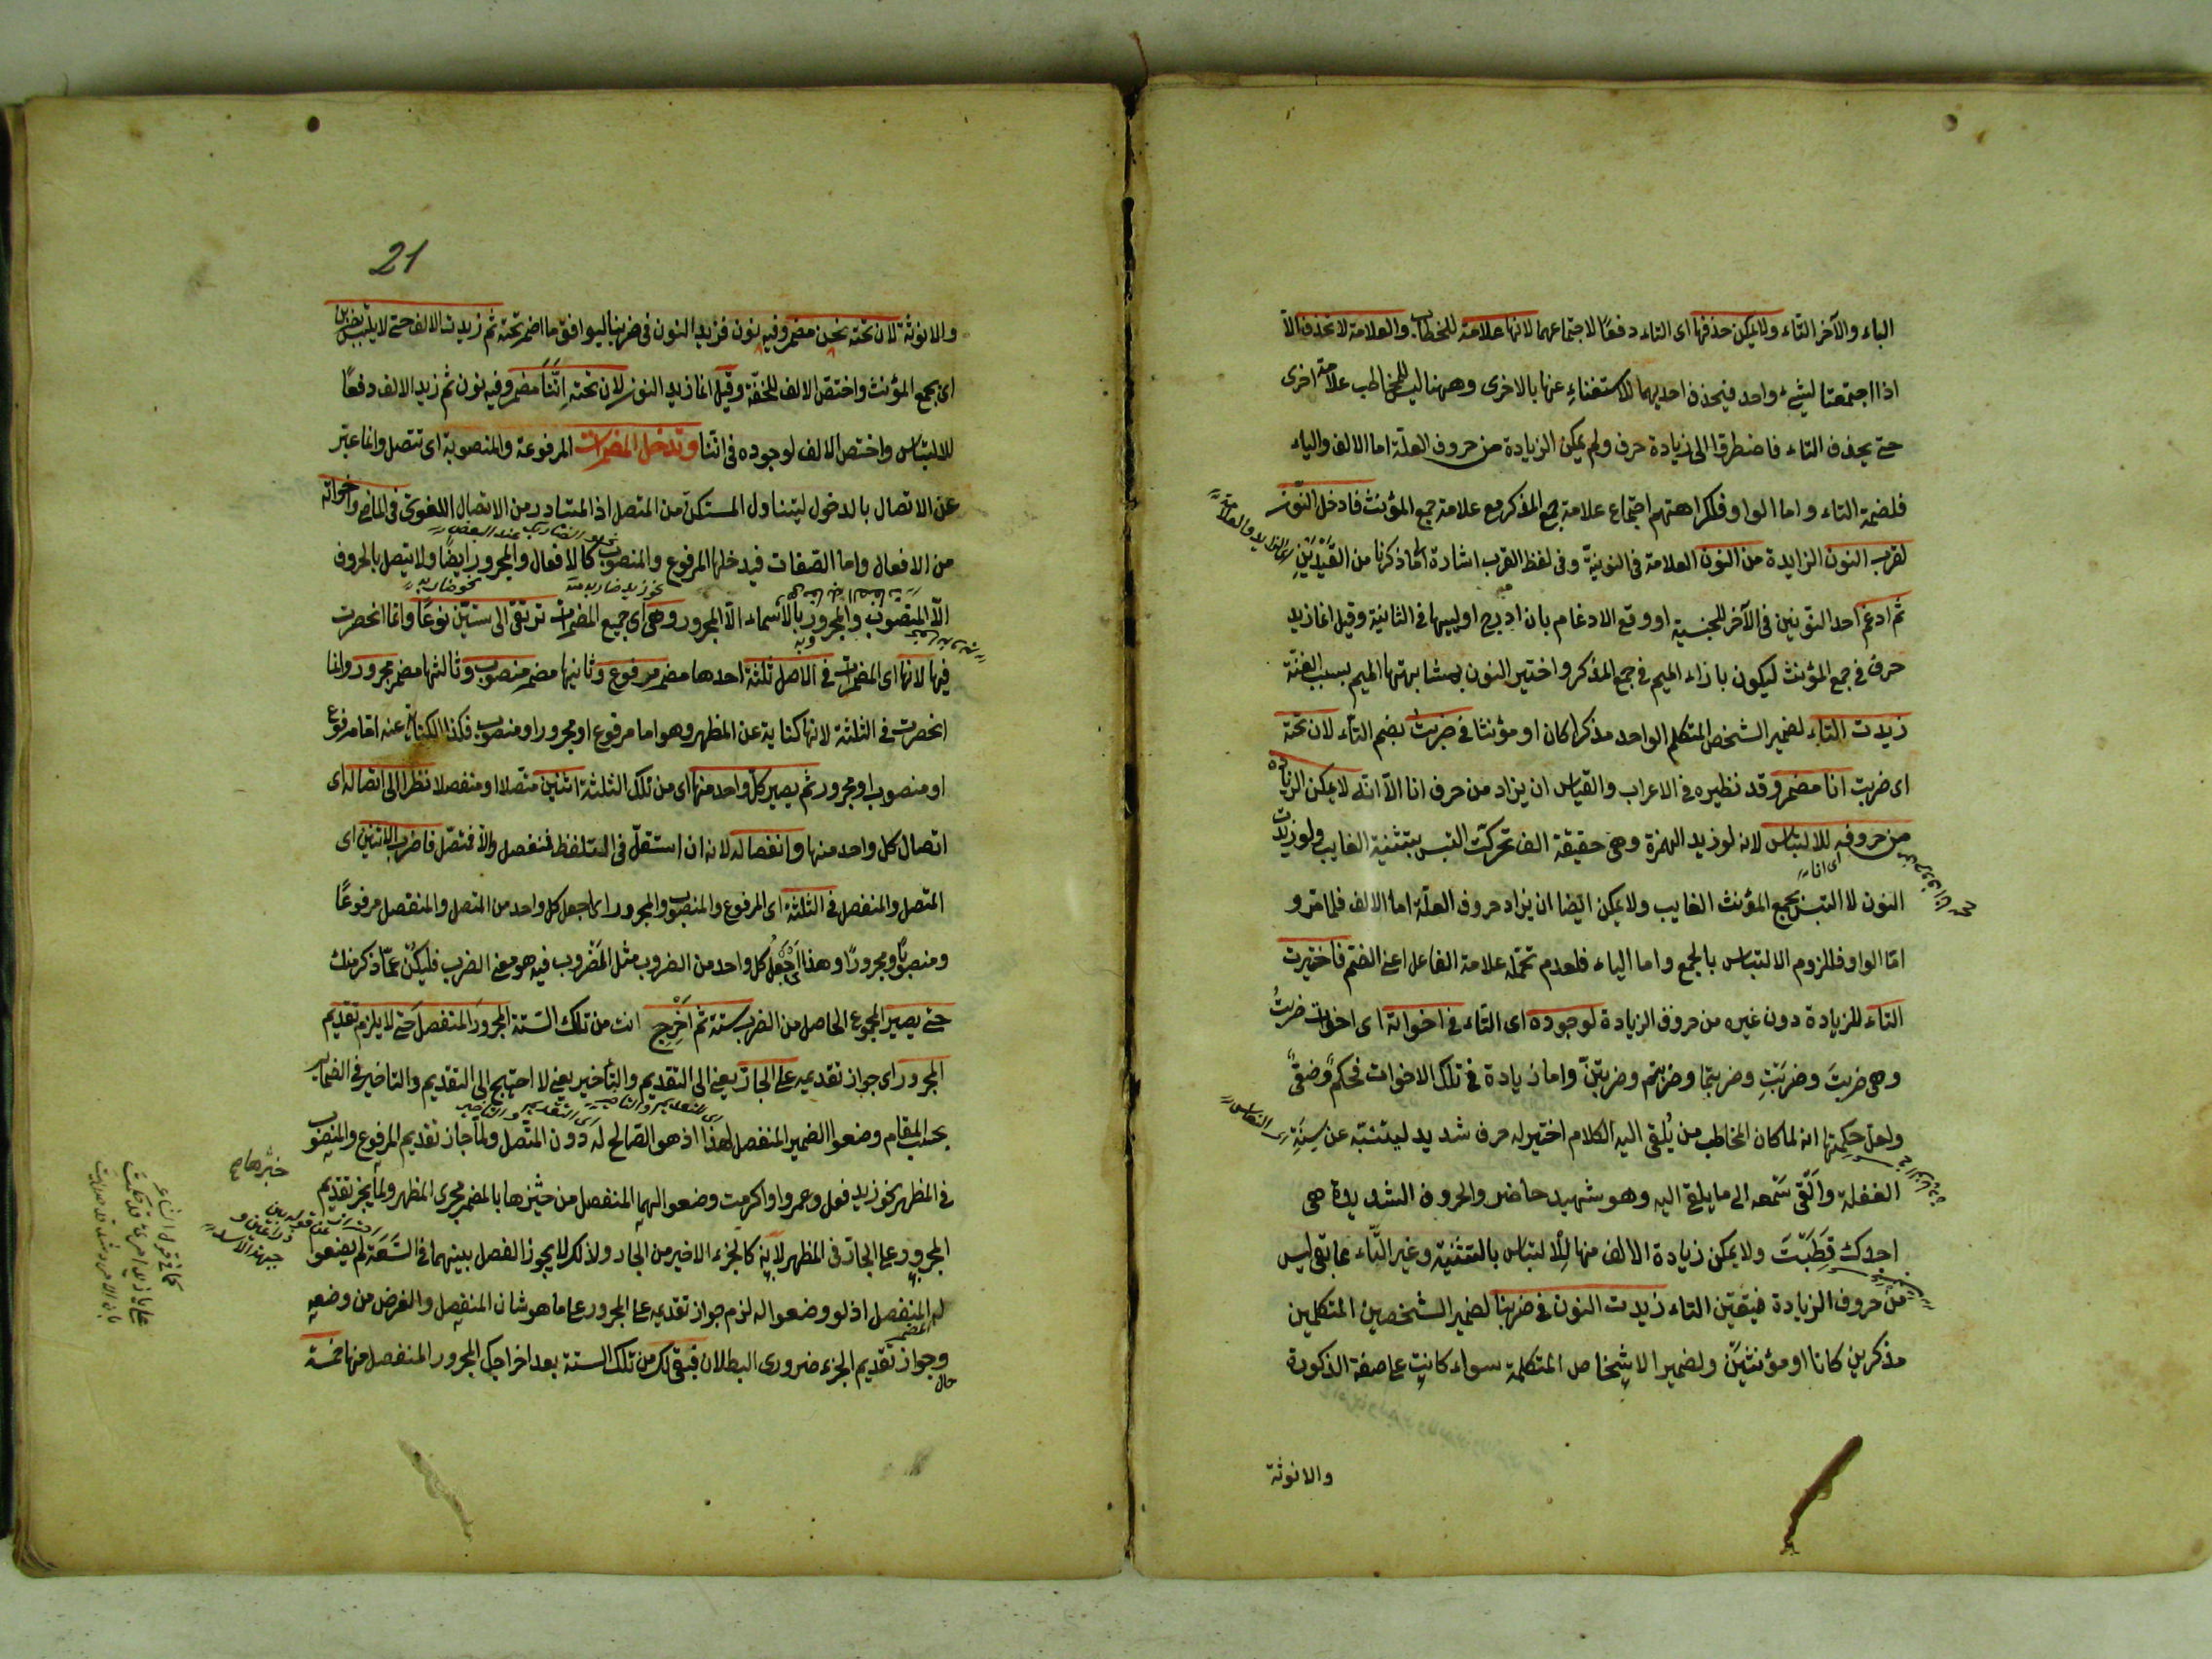 الباء والآخر التاء ولا يمكن حذفها اى التاء دفعًا لاجتماعهما لانها علامة للخطاب والعلامة لا تحذف الا
اذا اجتمعتا لشيء واحد فيحذف احديهما للاستغناء عنها بالاخرى وههنا ليس للمخاطب علامة اخرى
حتى يحذف التاء فاضطرقا الى زيادة حرف ولم يمكن الزيادة من حروف العلّة اما الالف والياء
فلضمة التاء واما الواو فلكراهتهم اجتماع علامة جمع المذكر مع علامة جمع المؤنث فادخل النّون
لقرب النون الزايدة من النون العلامة فى النونيّة وفى لفظ القرب اشارة الى ما ذكرنا من القيدين
ثم ادغم احد النّونين فى الآخر للجنسية او وقع الادغام بان ادرج اوليها فى الثانية وقيل انما زيد
حرف فى جمع المؤنث ليكون بازاء الميم فى جمع المذكر واختير النون بمشابهتها الميم بسبب الغنّة
زيدت التاء لضمير الشخص المتكلم الواحد مذكرا كان او مؤنثا فى ضربتُ بضم التاء لان تحته
اى ضربت انا مضمر وقد نظيره فى الاعراب والقياس ان يزاد من حرف انا الّا انّه لا يمكن الزيادة
من حروفه للالتباس لانه لو زيد الهمزة وهى حقيقة الف تحركت التبس بتثنية الغايب ولو زيدت
النون لا التبس بجمع المؤنث الغايب ولا يمكن ايضا ان يزاد حروف العلّة اما الالف فلما مرّ و
امّا الواو فللزوم الالتباس بالجمع واما الياء فلعدم تحمّله علامة الفاعل اعنى الضّم فاختيرت
التاء للزيادة دون غيره من حروف الزيادة لوجوده اى التاء فى اخواته اى اخوات ضربتُ
وهى ضربتَ وضربتِ وضربتما وضربتم وضربتنّ واما زيادة فى تلك الاخوات فحكم
ولعل حكمتها انه لما كان المخاطب من يُلقى اليه الكلام اختير له حرف شديد ليتنبّه عن سِنَةِ
الغفلة والّقى سَمعه الى ما يلقى اليه وهو شهيد حاضر والحروف الشديدة هى
اجدك قطَبَتَ ولا يمكن زيادة الالف منها للألتباس بالتثنية وغير التّاء مما بقى ليس
من حروف الزيادة فيتعين التاء زيدت النون فى ضربنا لضمير الشخصين المتكلمين
مذكرين كانا او مؤنثيَن ولضمير الاشخاص المتكلمة سواء كانت على صفة الذكورة
والانوثة
21
والانوثة لان تحته نحن مضمر وفيه نون فزيد النون فى ضربنا ليوافق ما اضمر تحته ثم زيدت الالف حتى لا يلتبس بضربن
اى بجمع المؤنث واختصّ الالف للخفّة وقيل انما زيد النون لان تحته انّنا مضمر وفيه نون ثم زيد الالف دفعًا
للالتباس واختص الالف لوجوده فى انّنا وتدخل المضمرات المرفوعة والمنصوبة اى تتصل وانما عبّر
عن الاتصال بالدخول ليتناول المستكن من المتصل اذ المتبادر من الاتصال اللغوى فى الماضى واخواته
من الافعال واما الصّفات فيدخلها المرفوع والمنصوب كالافعال والمجرور ايضًا ولا يتصل بالحروف
الّا المنصوب والمجرور بالاسماء الّا المجرور وهى اى جميع المضمرات ترتقى الى ستّين نوعًا وانما انحصرت
فيها لانها اى المضمرات فى الاصل ثلثة احدها مضمر مرفوع وثانيها مضمر منصوب وثالثها مضمر مجرور وانما
انحصرت فى الثلثة لانها كناية عن المظهر وهو اما مرفوع او مجرور او منصوب فكذا الكناية عنه اما مرفوع
او منصوب او مجرور ثم يصير كل واحد منها اى من تلك الثلثة اثنين متّصلا او منفصلا نظرا الى اتصاله اى
اتصال كل واحد منها وانفصاله لانه ان استقلّ فى التلفظ فمنفصل والّا فمتصل فاضرب الاثنين اى
المتصل والمنفصل فى الثلثة اى المرفوع والمنصوب والمجرور اى اجعل كل واحد من المتصل والمنفصل مرفوعًا
ومنصوبًا ومجرورًا وهذا اى جَعْلُ كل واحد من المضروب مثل المَضروب فيه هو معنى الضرب فليكن عمّا ذكر منك
حتى يصير المجموع الحاصل من الضرب ستة ثم اَخْرِج انت من تلك الستة المجرورَ المنفصلَ حتى لا يلزم تقديم
المجرور اى جواز تقديمه على الجار يعنى الى التقديم والتأخير يعنى لا احتيج الى التقديم والتاخير فى الضماير
بحسب المقام وضعوا الضمير المنفصل لهذا اذ هو الصّالح له دون المتّصل ولما جاز تقديم المرفوع والمنصوب
فى المظهر نحو زيد فعل وعمروا اكرمت وضعوا لهما المنفصل من حيّزها بالمضمر مجرى المظهر ولما لم يجز تقديم
المجرور على الجار فى المظهر لانه كالجزء الاخير من الجار ولذلك لا يجوز الفصل بينهما فى السَّعَة لم يضعوا
له المنفصل اذ لو وضعوا له لزم جواز تقديمه على المجرور على ما هو شان المنفصل والغرض من وضعه
وجواز تقديم الجزء ضرورى البطلان فبقى لك من تلك الستة بعد اخراجك المجرور المنفصل منها خمسة